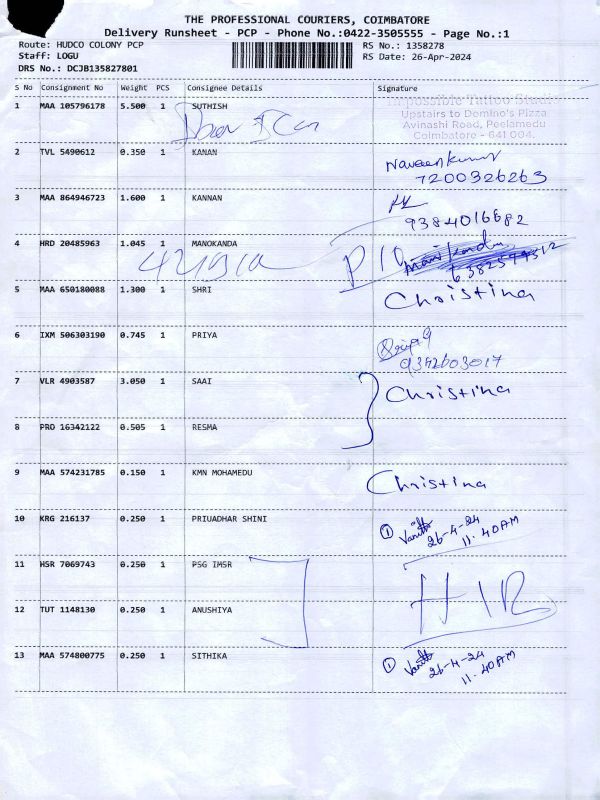 THE PROFESSIONAL COURIERS, COIMBATORE
Delivery Runsheet - PCP - Phone No.:0422-3505555 - Page No.:1
Route: HUDCO COLONY PCP
RS No.: 1358278
Staff: LOGU
RS Date: 26-Apr-2024
DRS No.: DCJB135827801
S No Consignment No Weight PCS Consignee Details Signature
1 MAA 105796178 5.500 1 SUTHISH
Impossible Tattoo Studio
Upstairs to Domino's Pizza
Avinashi Road, Peelamedu
Coimbatore - 641 004.
2 TVL 5490612 0.350 1 KANAN
Naveenkumar
7200326263
3 MAA 864946723 1.600 1 KANNAN
9384016682
4 HRD 20485963 1.045 1 MANOKANDA
5 MAA 650180088 1.300 1 SHRI Christina
6 IXM 506303190 0.745 1 PRIYA
9342603017
7 VLR 4903587 3.050 1 SAAI Christina
8 PRO 16342122 0.505 1 RESMA
9 MAA 574231785 0.150 1 KMN MOHAMEDU Christina
10 KRG 216137 0.250 1 PRIUADHAR SHINI
1 26-4-24
11.40AM
11 HSR 7069743 0.250 1 PSG IMSR
12 TUT 1148130 0.250 1 ANUSHIYA
13 MAA 574800775 0.250 1 SITHIKA
1 26-4-24
11.40AM